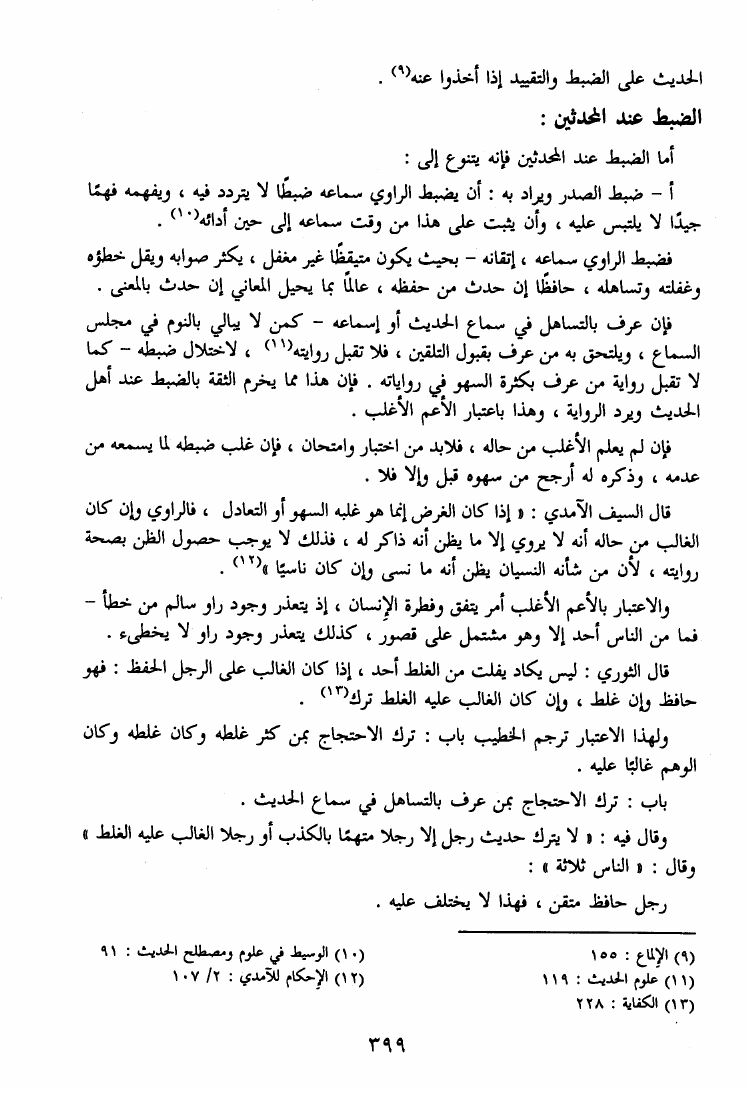 الحديث على الضبط والتقييد إذا أخذوا عنه(٩) .
الضبط عند المحدثين :
أما الضبط عند المحدثين فإنه يتنوع إلى :
أ – ضبط الصدر ويراد به : أن يضبط الراوي سماعه ضبطًا لا يتردد فيه ، ويفهمه فهمًا
جيدًا لا يلتبس عليه ، وأن يثبت على هذا من وقت سماعه إلى حين أدائه(١٠) .
فضبط الراوي سماعه ، إتقانه – بحيث يكون متيقظًا غير مغفل ، يكثر صوابه ويقل خطؤه
وغفلته وتساهله ، حافظًا إن حدث من حفظه ، عالمًا بما يحيل المعاني إن حدث بالمعنى .
فإن عرف بالتساهل في سماع الحديث أو إسماعه – كمن لا يبالي بالنوم في مجلس
السماع ، ويلتحق به من عرف بقبول التلقين ، فلا تقبل روايته(١١) ، لاختلال ضبطه – كما
لا تقبل رواية من عرف بكثرة السهو في رواياته . فإن هذا مما يخرم الثقة بالضبط عند أهل
الحديث ويرد الرواية ، وهذا باعتبار الأعم الأغلب .
فإن لم يعلم الأغلب من حاله ، فلابد من اختبار وامتحان ، فإن غلب ضبطه لما يسمعه من
عدمه ، وذكره له أرجح من سهوه قبل وإلا فلا .
قال السيف الآمدي : « إذا كان الغرض إنما هو غلبه السهو أو التعادل ، فالراوي وإن كان
الغالب من حاله أنه لا يروي إلا ما يظن أنه ذاكر له ، فذلك لا يوجب حصول الظن بصحة
روايته ، لأن من شأنه النسيان يظن أنه ما نسى وإن كان ناسيًا »(١٢) .
والاعتبار بالأعم الأغلب أمر يتفق وفطرة الإنسان ، إذ يتعذر وجود راو سالم من خطأ –
فما من الناس أحد إلا وهو مشتمل على قصور ، كذلك يتعذر وجود راو لا يخطىء .
قال الثوري : ليس يكاد يفلت من الغلط أحد ، إذا كان الغالب على الرجل الحفظ : فهو
حافظ وإن غلط ، وإن كان الغالب عليه الغلط ترك(١٣) .
ولهذا الاعتبار ترجم الخطيب باب : ترك الاحتجاج بمن كثر غلطه وكان غلطه وكان
الوهم غالبًا عليه .
باب : ترك الاحتجاج بمن عرف بالتساهل في سماع الحديث .
وقال فيه : « لا يترك حديث رجل إلا رجلا متهمًا بالكذب أو رجلا الغالب عليه الغلط »
وقال : « الناس ثلاثة » :
رجل حافظ متقن ، فهذا لا يختلف عليه .
(٩) الإلماع : ١٥٥ (١٠) الوسيط في علوم ومصطلح الحديث : ٩١
(١١) علوم الحديث : ١١٩ (١٢) الإحكام للآمدي : ٢/ ١٠٧
(١٣) الكفاية : ٢٢٨
٣٩٩